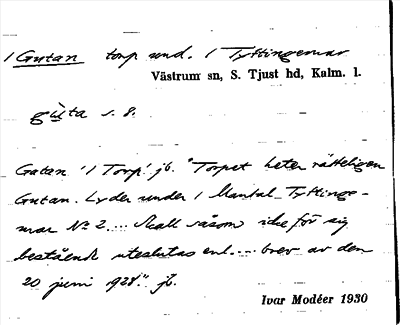 1 Gutan torp und. 1 Tyttingemar
Västrum sn, S. Tjust hd, Kalm. l.
gùta s. 8.
Gatan '1 Torp' jb. "Torpet heter rätteligen
Gutan. Lyder under 1 Mantal Tyttinge-
mar No 2.... Skall såsom icke för sig
bestående uteslutas enl.... brev av den
20 juni 1928." jb.
Ivar Modéer 1930